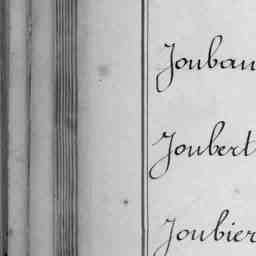 Jouban
Joubert
Joubier